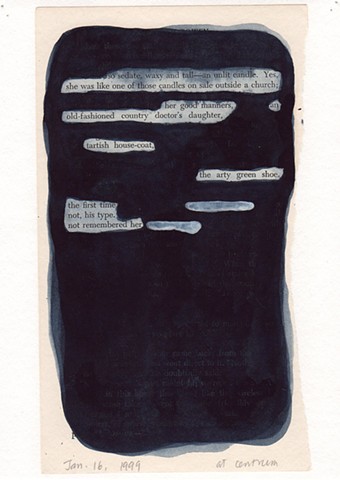 so sedate, waxy and tall—an unlit candle. Yes,
she was like one of those candles on sale outside a church;
her good manners, an
old-fashioned country doctor's daughter,
tartish house-coat,
the arty green shoe,
the first time
not, his type.
not remembered her
Jan. 16, 1999 at centrum